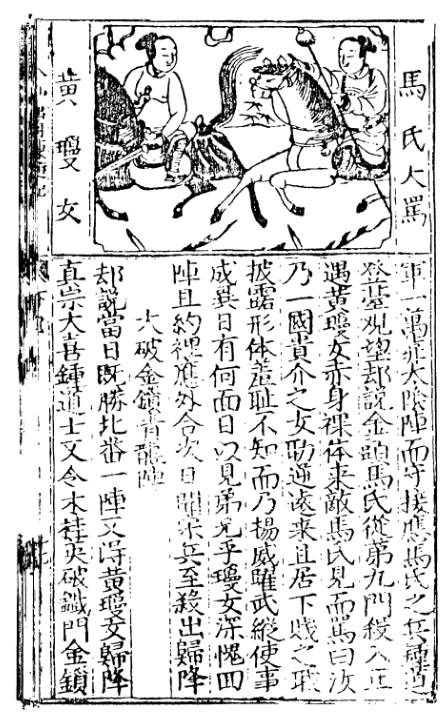 馬氏大罵
黄瓊女
軍一萬靠太陰陣而守接應馬氏之兵鍾道
登臺观望却説金頭馬氏從第九門殺入正
遇黄瓊女赤身裸体来敵馬氏見而罵曰汝
乃一國貴介之女助逆遠来且居下賤之職
披露形体羞耻不知而乃揚威躍武縱使事
成異日有何面目以見弟兄乎瓊女深愧回
陣且約裡應外合次日聞宋兵至殺出歸降
大破金鎖青龍陣
却説當日既勝北番一陣又得黄瓊女歸降
真宗大喜鍾道士又令木桂英破鐵門金鎖